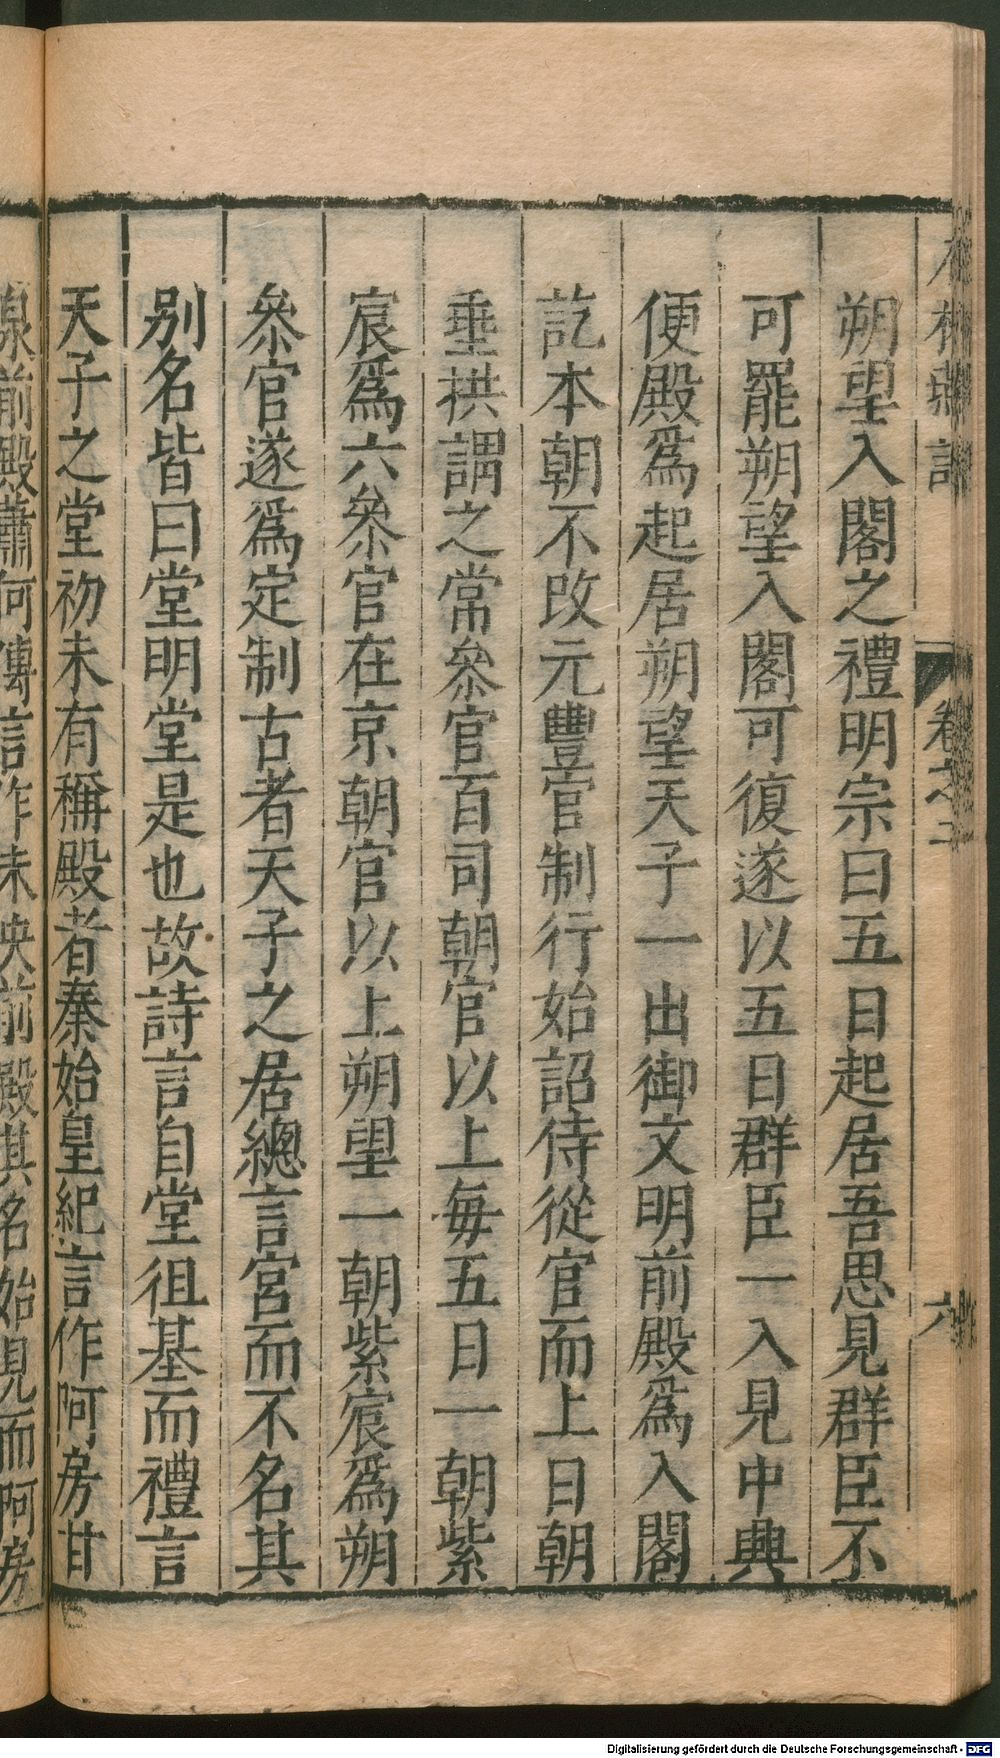 朔望入閣之禮明宗曰五日起居吾思見群臣不
可罷朔望入閣可復遂以五日群臣一入見中興
便殿爲起居朔望天子一出御文明前殿爲入閣
訖本朝不改元豐官制行始詔侍從官而上日朝
垂拱謂之常叅官百司朝官以上毎五日一朝紫
宸爲六叅官在京朝官以上朔望一朝紫宸爲朔
叅官遂爲定制古者天子之居總言宮而不名其
别名皆曰堂明堂是也故詩言自堂徂基而禮言
天子之堂初未有稱殿者秦始皇紀言作阿房甘
泉前殿蕭何傳言作未央前殿其名始見而阿房
卷之二
六
Digitalisierung gefördert durch die Deutsche Forschungsgemeinschaft - DFG